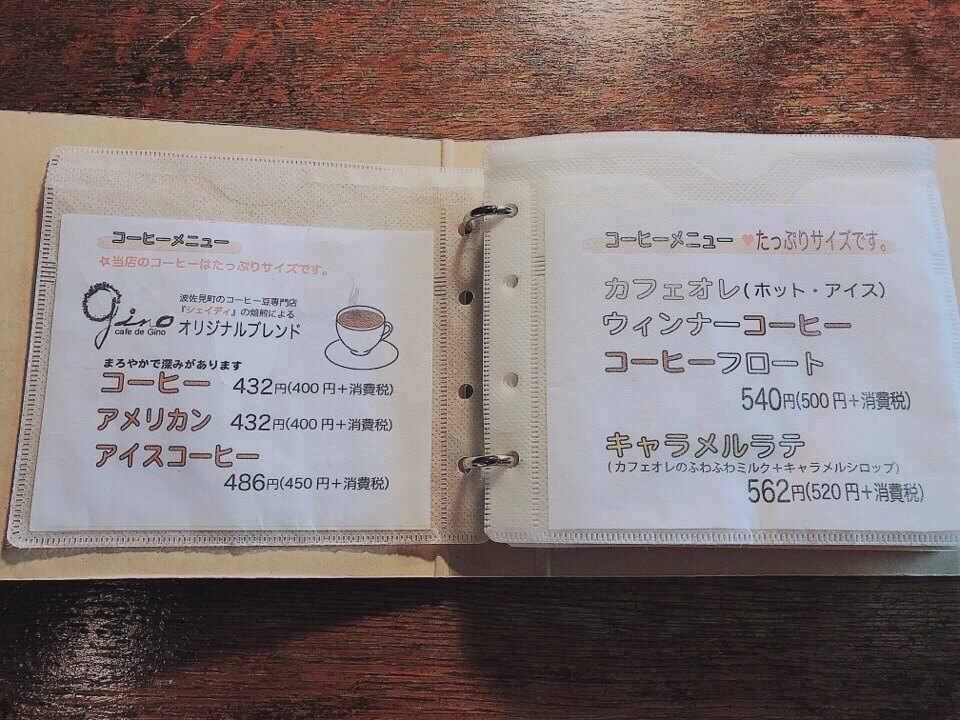 コーヒーメニュー
☆当店のコーヒーはたっぷりサイズです。
gino
cafe de Gino
波佐見町のコーヒー豆専門店
『シェイディ』の焙煎による
オリジナルブレンド
まろやかで深みがあります
コーヒー 432円(400円+消費税)
アメリカン 432円(400円+消費税)
アイスコーヒー
486円(450円+消費税)
コーヒーメニュー ♥たっぷりサイズです。
カフェオレ(ホット・アイス)
ウィンナーコーヒー
コーヒーフロート
540円(500円+消費税)
キャラメルラテ
(カフェオレのふわふわミルク+キャラメルシロップ)
562円(520円+消費税)